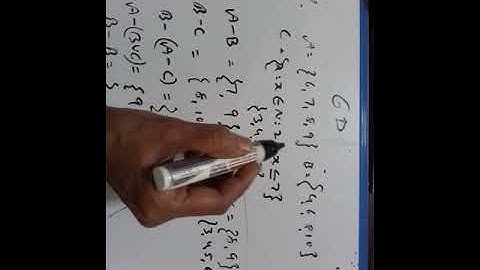 6D
A = {6, 7, 8, 9} B = {4, 6, 8, 10}
C = {x : x ∈ N : 2 x ≤ 7}
{3, 4,
A - B = {7, 9 = {8, 9}
B - C = {8, 10 {3, 4, 5,
B - (A - C) = {
A - (B ∪ C) = {9
B - B = {